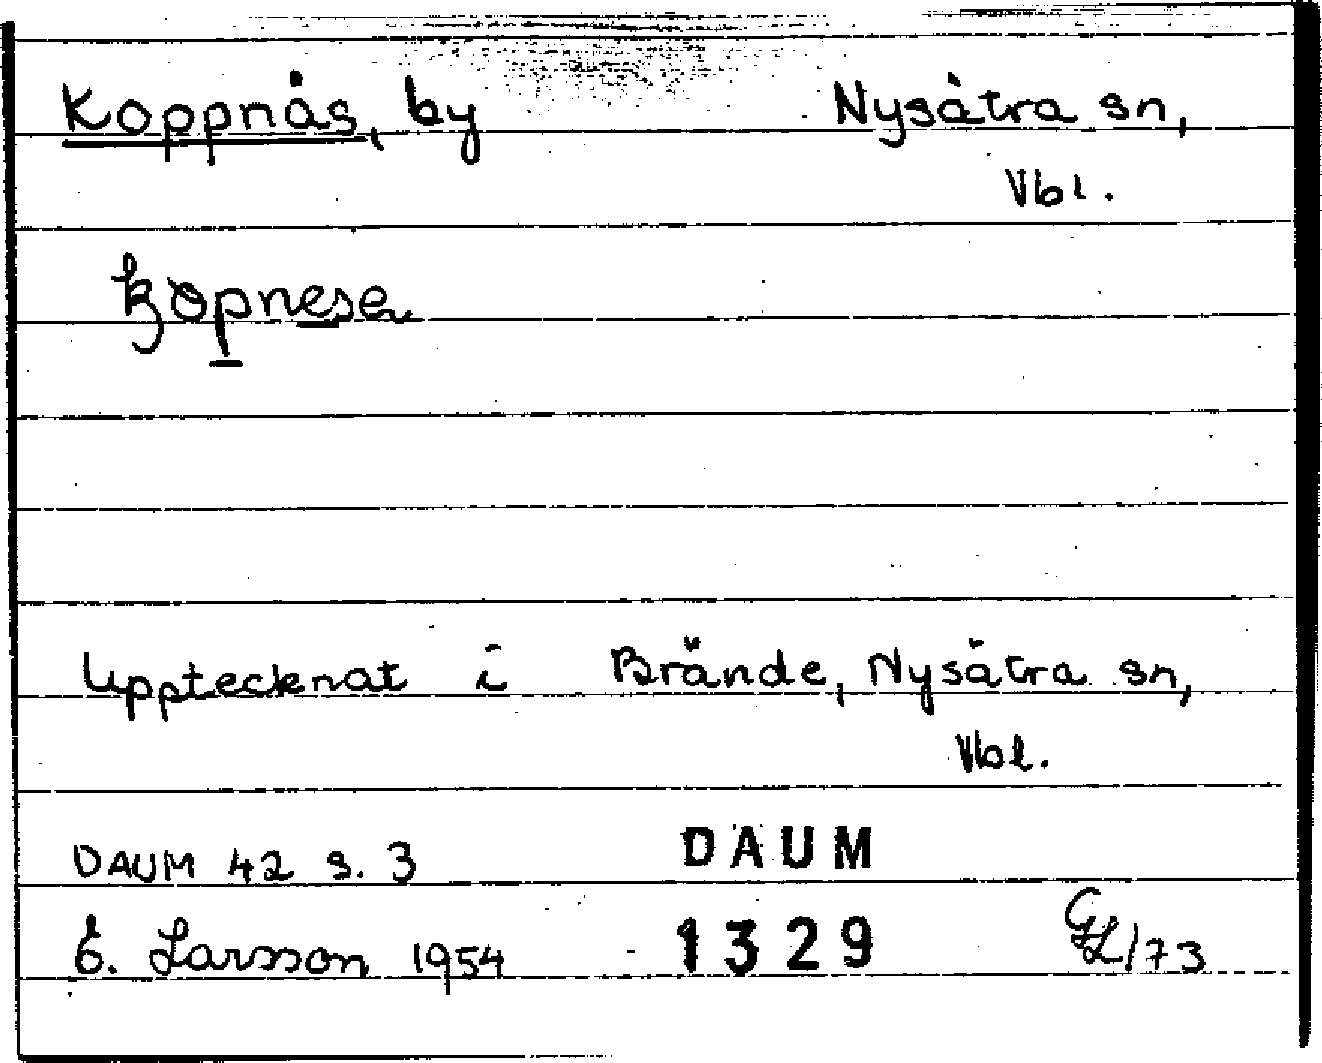 Koppnäs, by Nysätra sn,
Vbl.
Upptecknat i Brände, Nysätra sn,
Vbl.
DAUM 42 s. 3 DAUM
E. Larsson 1954 1329 GL/73